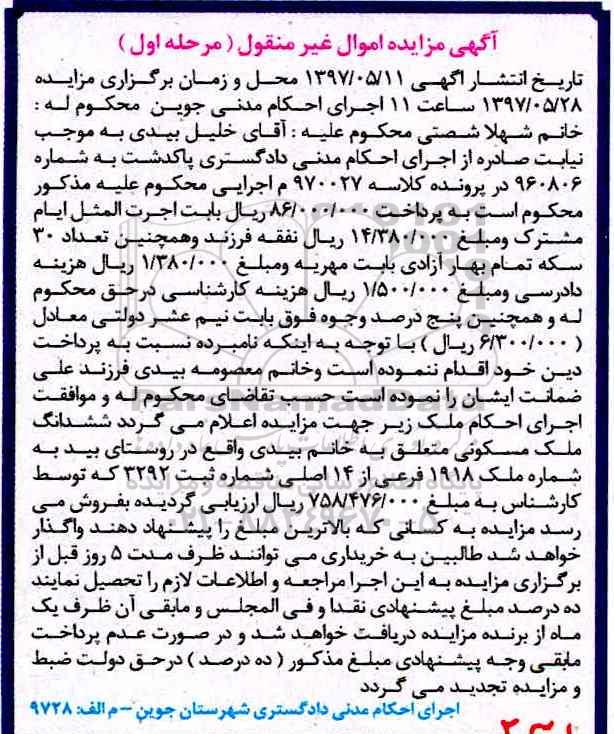 آگهی مزایده اموال غیر منقول ( مرحله اول )
تاریخ انتشار آگهی ۱۳۹۷/۰۵/۱۱ محل و زمان برگزاری مزایده
۱۳۹۷/۰۵/۲۸ ساعت ۱۱ اجرای احکام مدنی جوین محکوم له :
خانم شهلا شصتی محکوم علیه : آقای خلیل بیدی به موجب
نیابت صادره از اجرای احکام مدنی دادگستری پاکدشت به شماره
۹۶۰۸۰۶ در پرونده کلاسه ۹۷۰۰۲۷ م اجرایی محکوم علیه مذکور
محکوم است به پرداخت ۸۶/۰۰۰/۰۰۰ ریال بابت اجرت المثل ایام
مشترک ومبلغ ۱۴/۳۸۰/۰۰۰ ریال نفقه فرزند وهمچنین تعداد ۳۰
سکه تمام بهار آزادی بابت مهریه ومبلغ ۱/۳۸۰/۰۰۰ ریال هزینه
دادرسی ومبلغ ۱/۵۰۰/۰۰۰ ریال هزینه کارشناسی درحق محکوم
له و همچنین پنج درصد وجوه فوق بابت نیم عشر دولتی معادل
( ۶/۳۰۰/۰۰۰ ریال ) با توجه به اینکه نامبرده نسبت به پرداخت
دین خود اقدام ننموده است وخانم معصومه بیدی فرزند علی
ضمانت ایشان را نموده است حسب تقاضای محکوم له و موافقت
اجرای احکام ملک زیر جهت مزایده اعلام می گردد ششدانگ
ملک مسکونی متعلق به خانم بیدی واقع در روستای بید به
شماره ملک ۱۹۱۸ فرعی از ۱۴ اصلی شماره ثبت ۳۲۹۲ که توسط
کارشناس به مبلغ ۷۵۸/۴۷۶/۰۰۰ ریال ارزیابی گردیده بفروش می
رسد مزایده به کسانی که بالاترین مبلغ را پیشنهاد دهند واگذار
خواهد شد طالبین به خریداری می توانند ظرف مدت ۵ روز قبل از
برگزاری مزایده به این اجرا مراجعه و اطلاعات لازم را تحصیل نمایند
ده درصد مبلغ پیشنهادی نقدا و فی المجلس و مابقی آن ظرف یک
ماه از برنده مزایده دریافت خواهد شد و در صورت عدم پرداخت
مابقی وجه پیشنهادی مبلغ مذکور ( ده درصد ) درحق دولت ضبط
و مزایده تجدید می گردد
اجرای احکام مدنی دادگستری شهرستان جوین – م الف: ۹۷۲۸